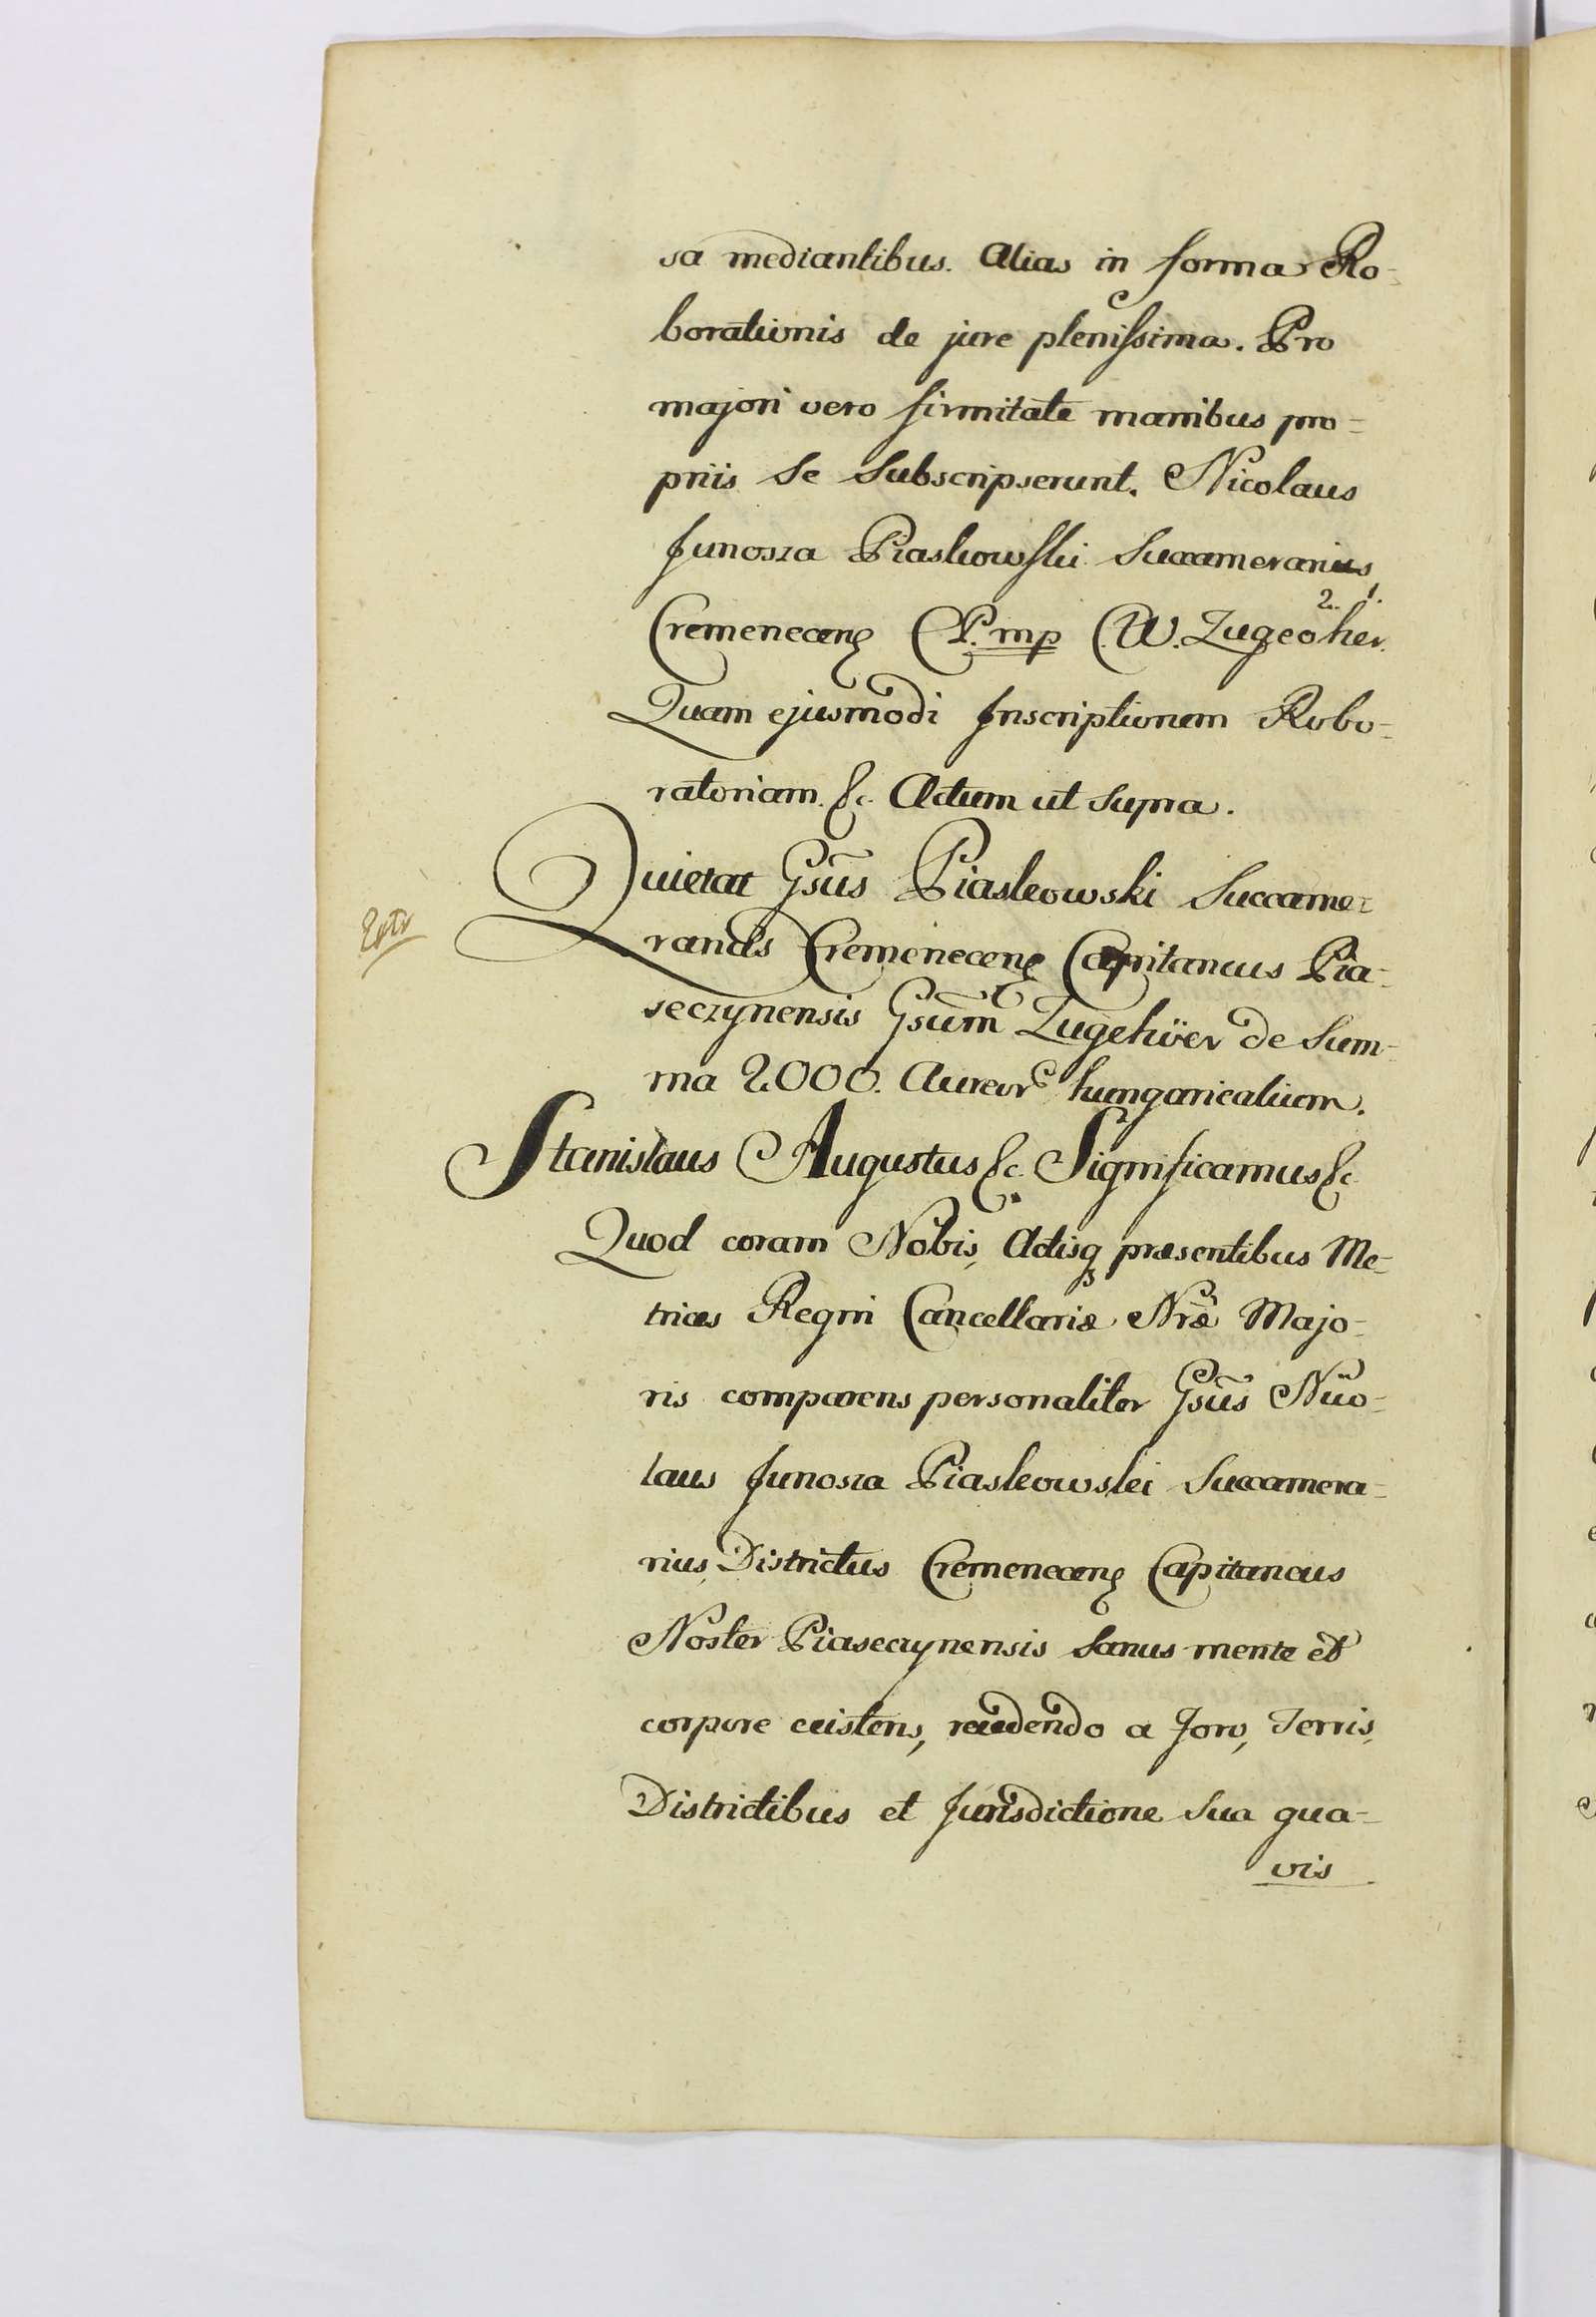 sa mediantibus. Alias in forma Ro-
borationis de jure plenissima. Pro
majori vero firmitate manibus pro-
priis se subscripserunt. Nicolaus
Junosza Piaskowski Succamerarius
2. 1.
Cremenecens P. mp W. Zugeoher.
Quam ejusmodi Inscriptionem Robo-
ratoriam &c. Actum ut supra.
Quietat Gsus Piaskowski Succame-
Extr
Cremenecens Capitaneus Pia-
seczynensis Gsum Zugehöer de Sum-
ma 2000. Aureor hungaricalium.
Stanislaus Augustus &c. Significamus &c
Quod coram Nobis, Actisq presentibus Me-
trices Regni Cancellariæ Nræ Majo-
ris comparens personaliter Gsus Nico-
laus Junosza Piaskowski Succamera-
rius Districtus Cremenecens Capitaneus
Noster Piaseczynensis sanus mente et
corpore existens, recedendo a Foro, Terris,
Districtibus et Jurisdictione sua qua-
vis